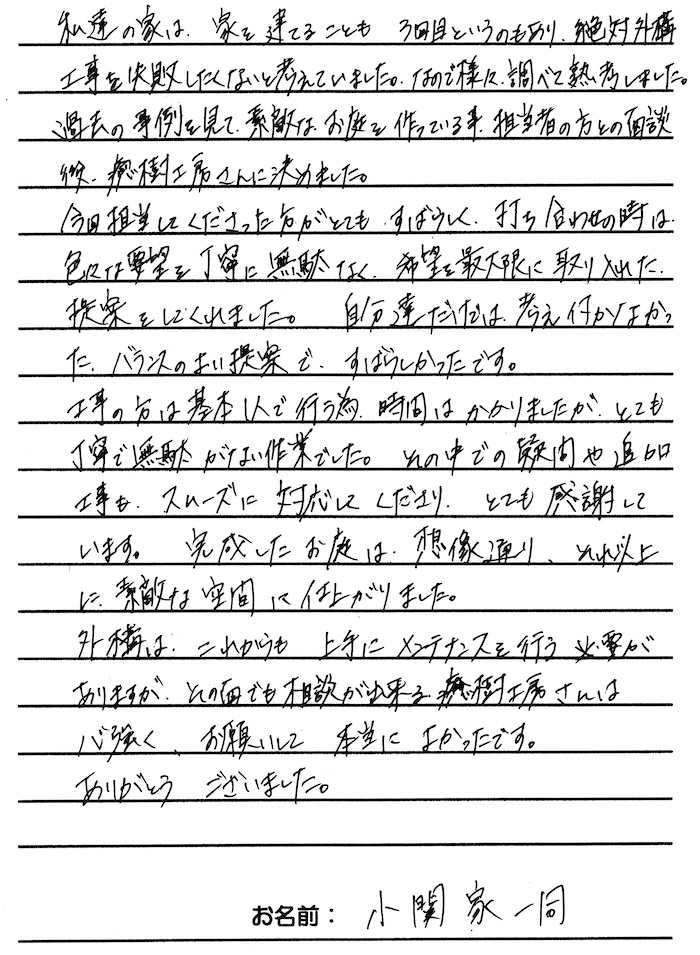 私達の家は、家を建てることも 3回目というのもあり、絶対外構
工事を失敗したくないと考えていました。なので様々、調べて熟考しました。
過去の事例を見て、素敵なお庭を作っている事、担当者の方との面談
後、癒樹工房さんに決めました。
今回担当してくださった方がとても すばらしく、打ち合わせの時は、
色々な要望を丁寧に無駄なく、希望を最大限に取り入れた、
提案をしてくれました。 自分達だけでは、考え付かなかっ
た、バランスのよい提案で、すばらしかったです。
工事の方は基本1人で行う為、時間はかかりましたが、とても
丁寧で無駄がない作業でした。その中での疑問や追加
工事も、スムーズに対応してくださり、とても感謝して
います。 完成したお庭は、想像通り、それ以上
に、素敵な空間に仕上がりました。
外構は、これからも 上手にメンテナンスを行う必要が
ありますが、その面でも相談が出来る癒樹工房さんは
心強く、お願いして 本当に よかったです。
ありがとう ございました。
お名前： 小関家一同